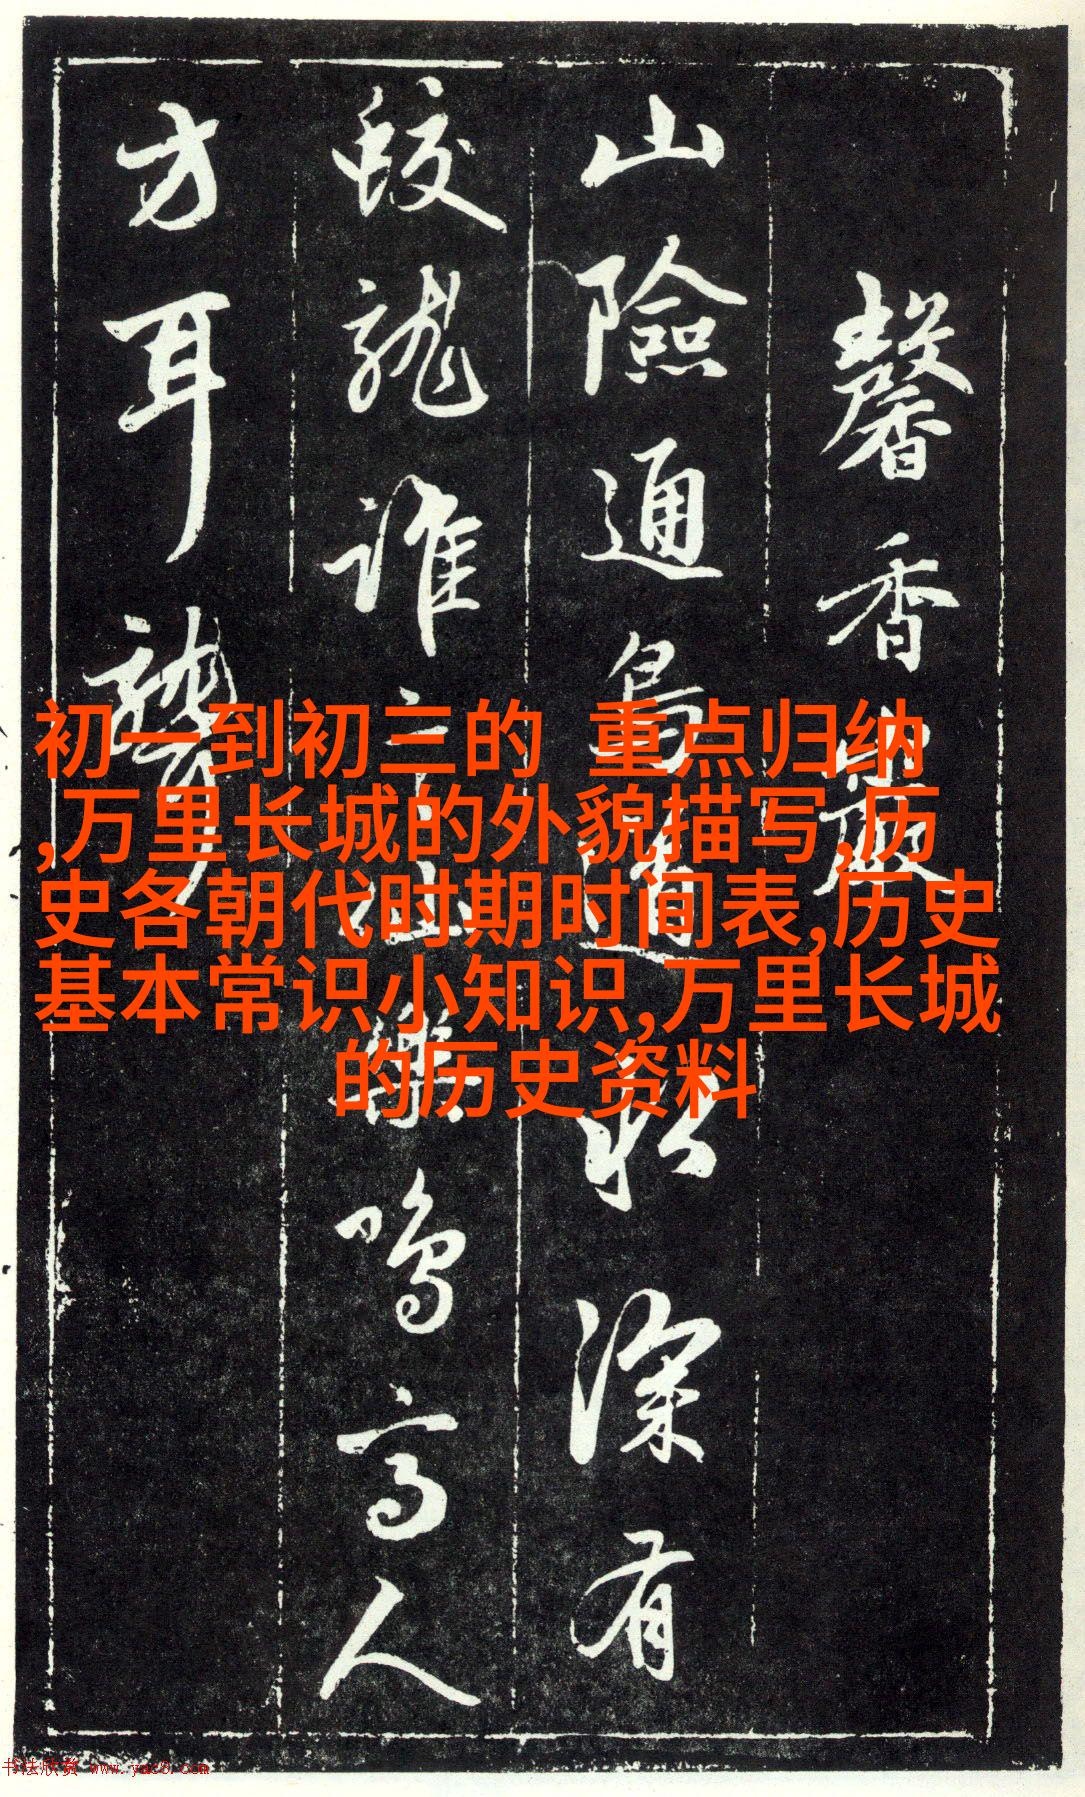 馨香
山險通鳥道秋深有
蛟龍誰樂鳴高人
方耳聾
初一到初三的 重点归纳
,万里长城的外貌描写,历
史各朝代时期时间表,历史
基本常识小知识,万里长城
的历史资料
书法欣赏 www.yac8.com